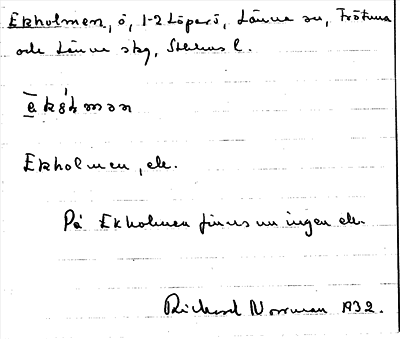 Ekholmen, ö, 1-2 Löparö, Länna sn, Frötuna
och Länna skg, Sthlms l.
Ekholmen, ek.
På Ekholmen finns nu ingen ek.
Rickard Norrman 1932.